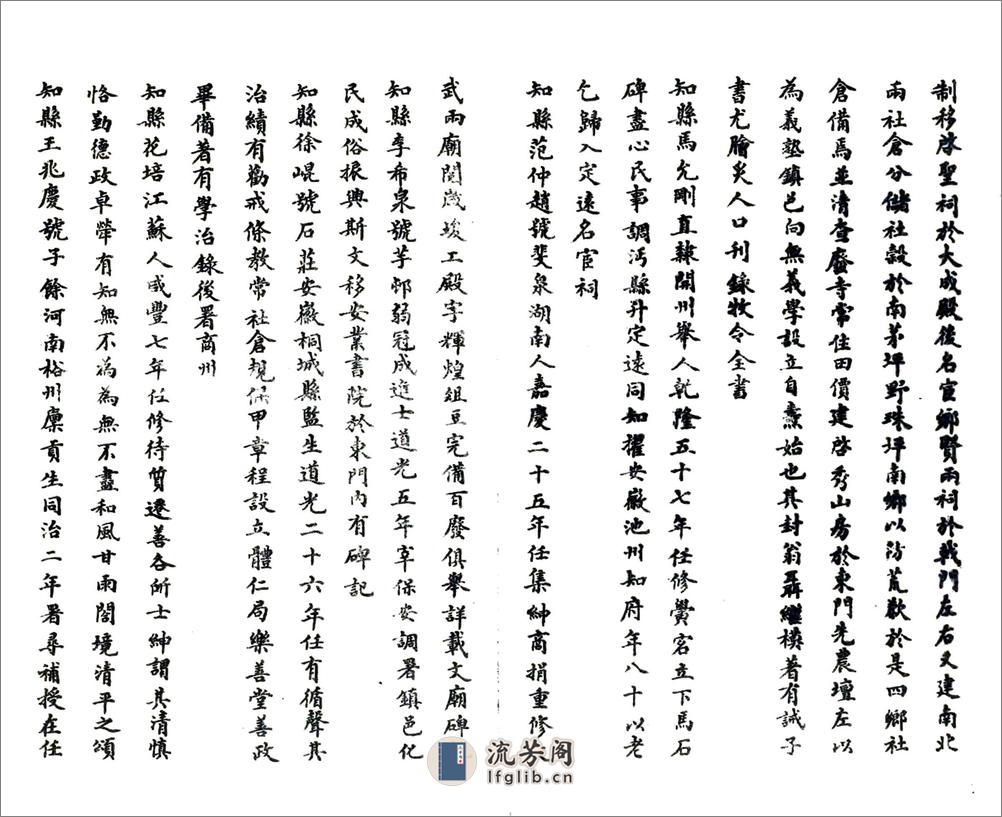 制移啓聖祠於大成殿後名宦鄉賢兩祠於戟門左右又建南北
兩社倉分儲社穀於南茅坪野珠坪南鄉以防荒歉於是四鄉社
倉備焉並清查廢寺常住田價建啓秀山房於東門先農壇左以
為義塾鎮邑向無義學設立自燾始也其封翁聶繼模著有誡子
書尤膾炙人口刊錄牧令全書
知縣馬允剛直隸開州舉人乾隆五十七年任修黌宮立下馬石
碑盡心民事調沔縣升定遠同知擢安徽池州知府年八十以老
乞歸入定遠名宦祠
知縣范仲趙號斐泉湖南人嘉慶二十五年任集紳商捐重修
武兩廟閱歲竣工殿宇輝煌俎豆完備百廢俱舉詳載文廟碑
知縣李布泉號芋邨弱冠成進士道光五年宰保安調署鎮邑化
民成俗振興斯文移安業書院於東門內有碑記
知縣徐崐號石莊安徽桐城縣監生道光二十六年任有循聲其
治績有勸戒條教常社倉規保甲章程設立體仁局樂善堂善政
畢備著有學治錄後署商州
知縣花培江蘇人咸豐七年任修待質遷善各所士紳謂其清慎
恪勤德政卓犖有知無不為為無不盡和風甘雨閤境清平之頌
知縣王兆慶號子餘河南裕州廩貢生同治二年署尋補授在任
流芳阁
lfglib.cn